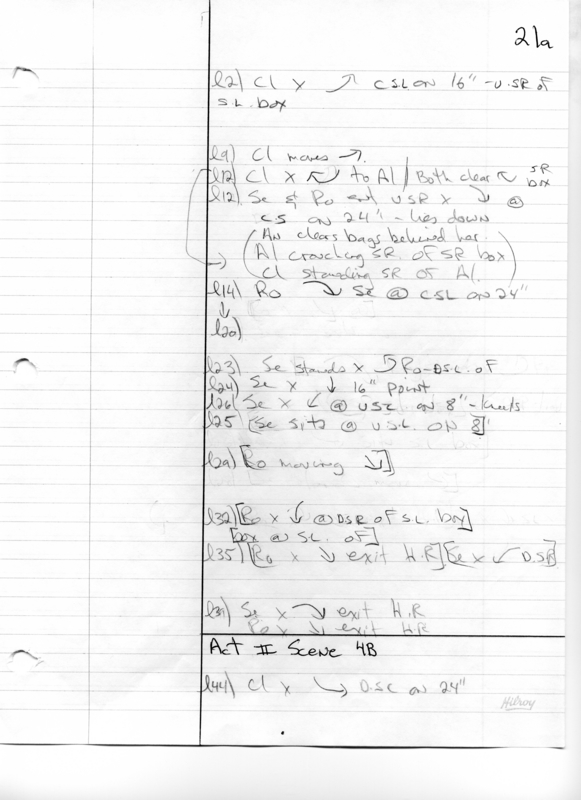 21a
l2) Cl x ↗ CSL on 16" - U.SR of
S.L. box
l9) Cl moves →.
l12) Cl x to Al / Both clear ↖ SR box
l12) Se & Ro ent USR x ↘ @
CS on 24" - lies down
(An clears bags behind her.
Al crouching SR of SR box
Cl standing SR of Al.)
l14) Ro ↘ Se @ CSL on 24"
↓
l20)
l23) Se stands x Ro - DSL of
l24) Se x ↓ 16" point
l26) Se x ↙ @ USL on 8" - kneels
l25 [Se sits @ USL ON 8]"
l2a) [Ro moving ↘]
l32) [Ro x ↓ @ DSR OF S.L. box]
[box @ SL. OF]
l35) [Ro x ↘ exit H.R] [Se x ↙ D.SR]
l39) Se x ↘ exit H.R
Ro x ↘ exit H.R
Act II Scene 4B
l44) Cl x ↘ D.SC on 24"
Hilroy